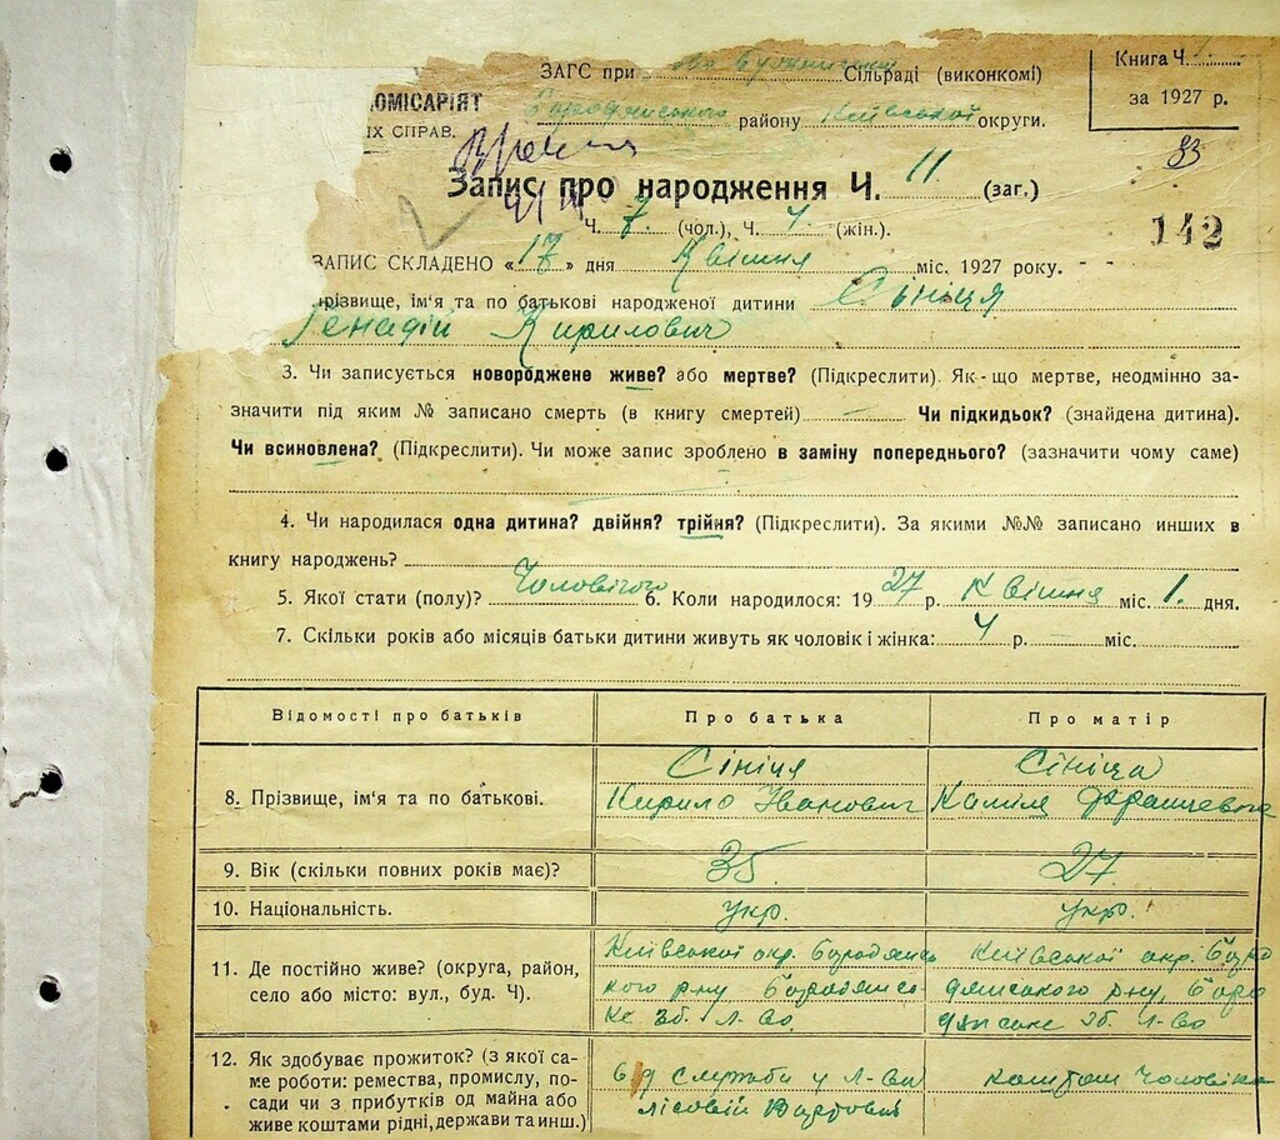 ЗАГС при Сільраді (виконкомі)
Книга Ч.
за 1927 р.
ОМІСАРІЯТ
ІХ СПРАВ.
Бородянського району Київської округи.
83
Запис про народження Ч. 11 (заг.)
Ч. 7 (чол.), Ч. 4 (жін.).
142
ЗАПИС СКЛАДЕНО «17» дня Квітня міс. 1927 року.
різвище, ім'я та по батькові народженої дитини Сініця
Генадій Кирилович
3. Чи записується новороджене живе? або мертве? (Підкреслити). Як-що мертве, неодмінно за-
значити під яким № записано смерть (в книгу смертей) — Чи підкидьок? (знайдена дитина).
Чи всиновлена? (Підкреслити). Чи може запис зроблено в заміну попереднього? (зазначити чому саме)
4. Чи народилася одна дитина? двійня? трійня? (Підкреслити). За якими №№ записано инших в
книгу народжень?
5. Якої стати (полу)? Чоловічого 6. Коли народилося: 1927 р. Квітня міс. 1. дня.
7. Скільки років або місяців батьки дитини живуть як чоловік і жінка: 4 р. — міс.
Відомості про батьків Про батька Про матір
8. Прізвище, ім'я та по батькові.
Сініця
Кирило Іванович
Сініца
Каміля
9. Вік (скільки повних років має)? 35 27
10. Національність. укр. укр.
11. Де постійно живе? (округа, район,
село або місто: вул., буд. Ч).
Київської окр. Бородянсь
кого р-ну Бородянсь
ке зб. л-во
Київської окр. Боро
дянського р-ну, Боро
дянське зб. л-во
12. Як здобуває прожиток? (з якої са-
ме роботи: ремества, промислу, по-
сади чи з прибутків од майна або
живе коштами рідні, держави та инш.)
від служби у л-ві
лісовий
коштом чоловіка